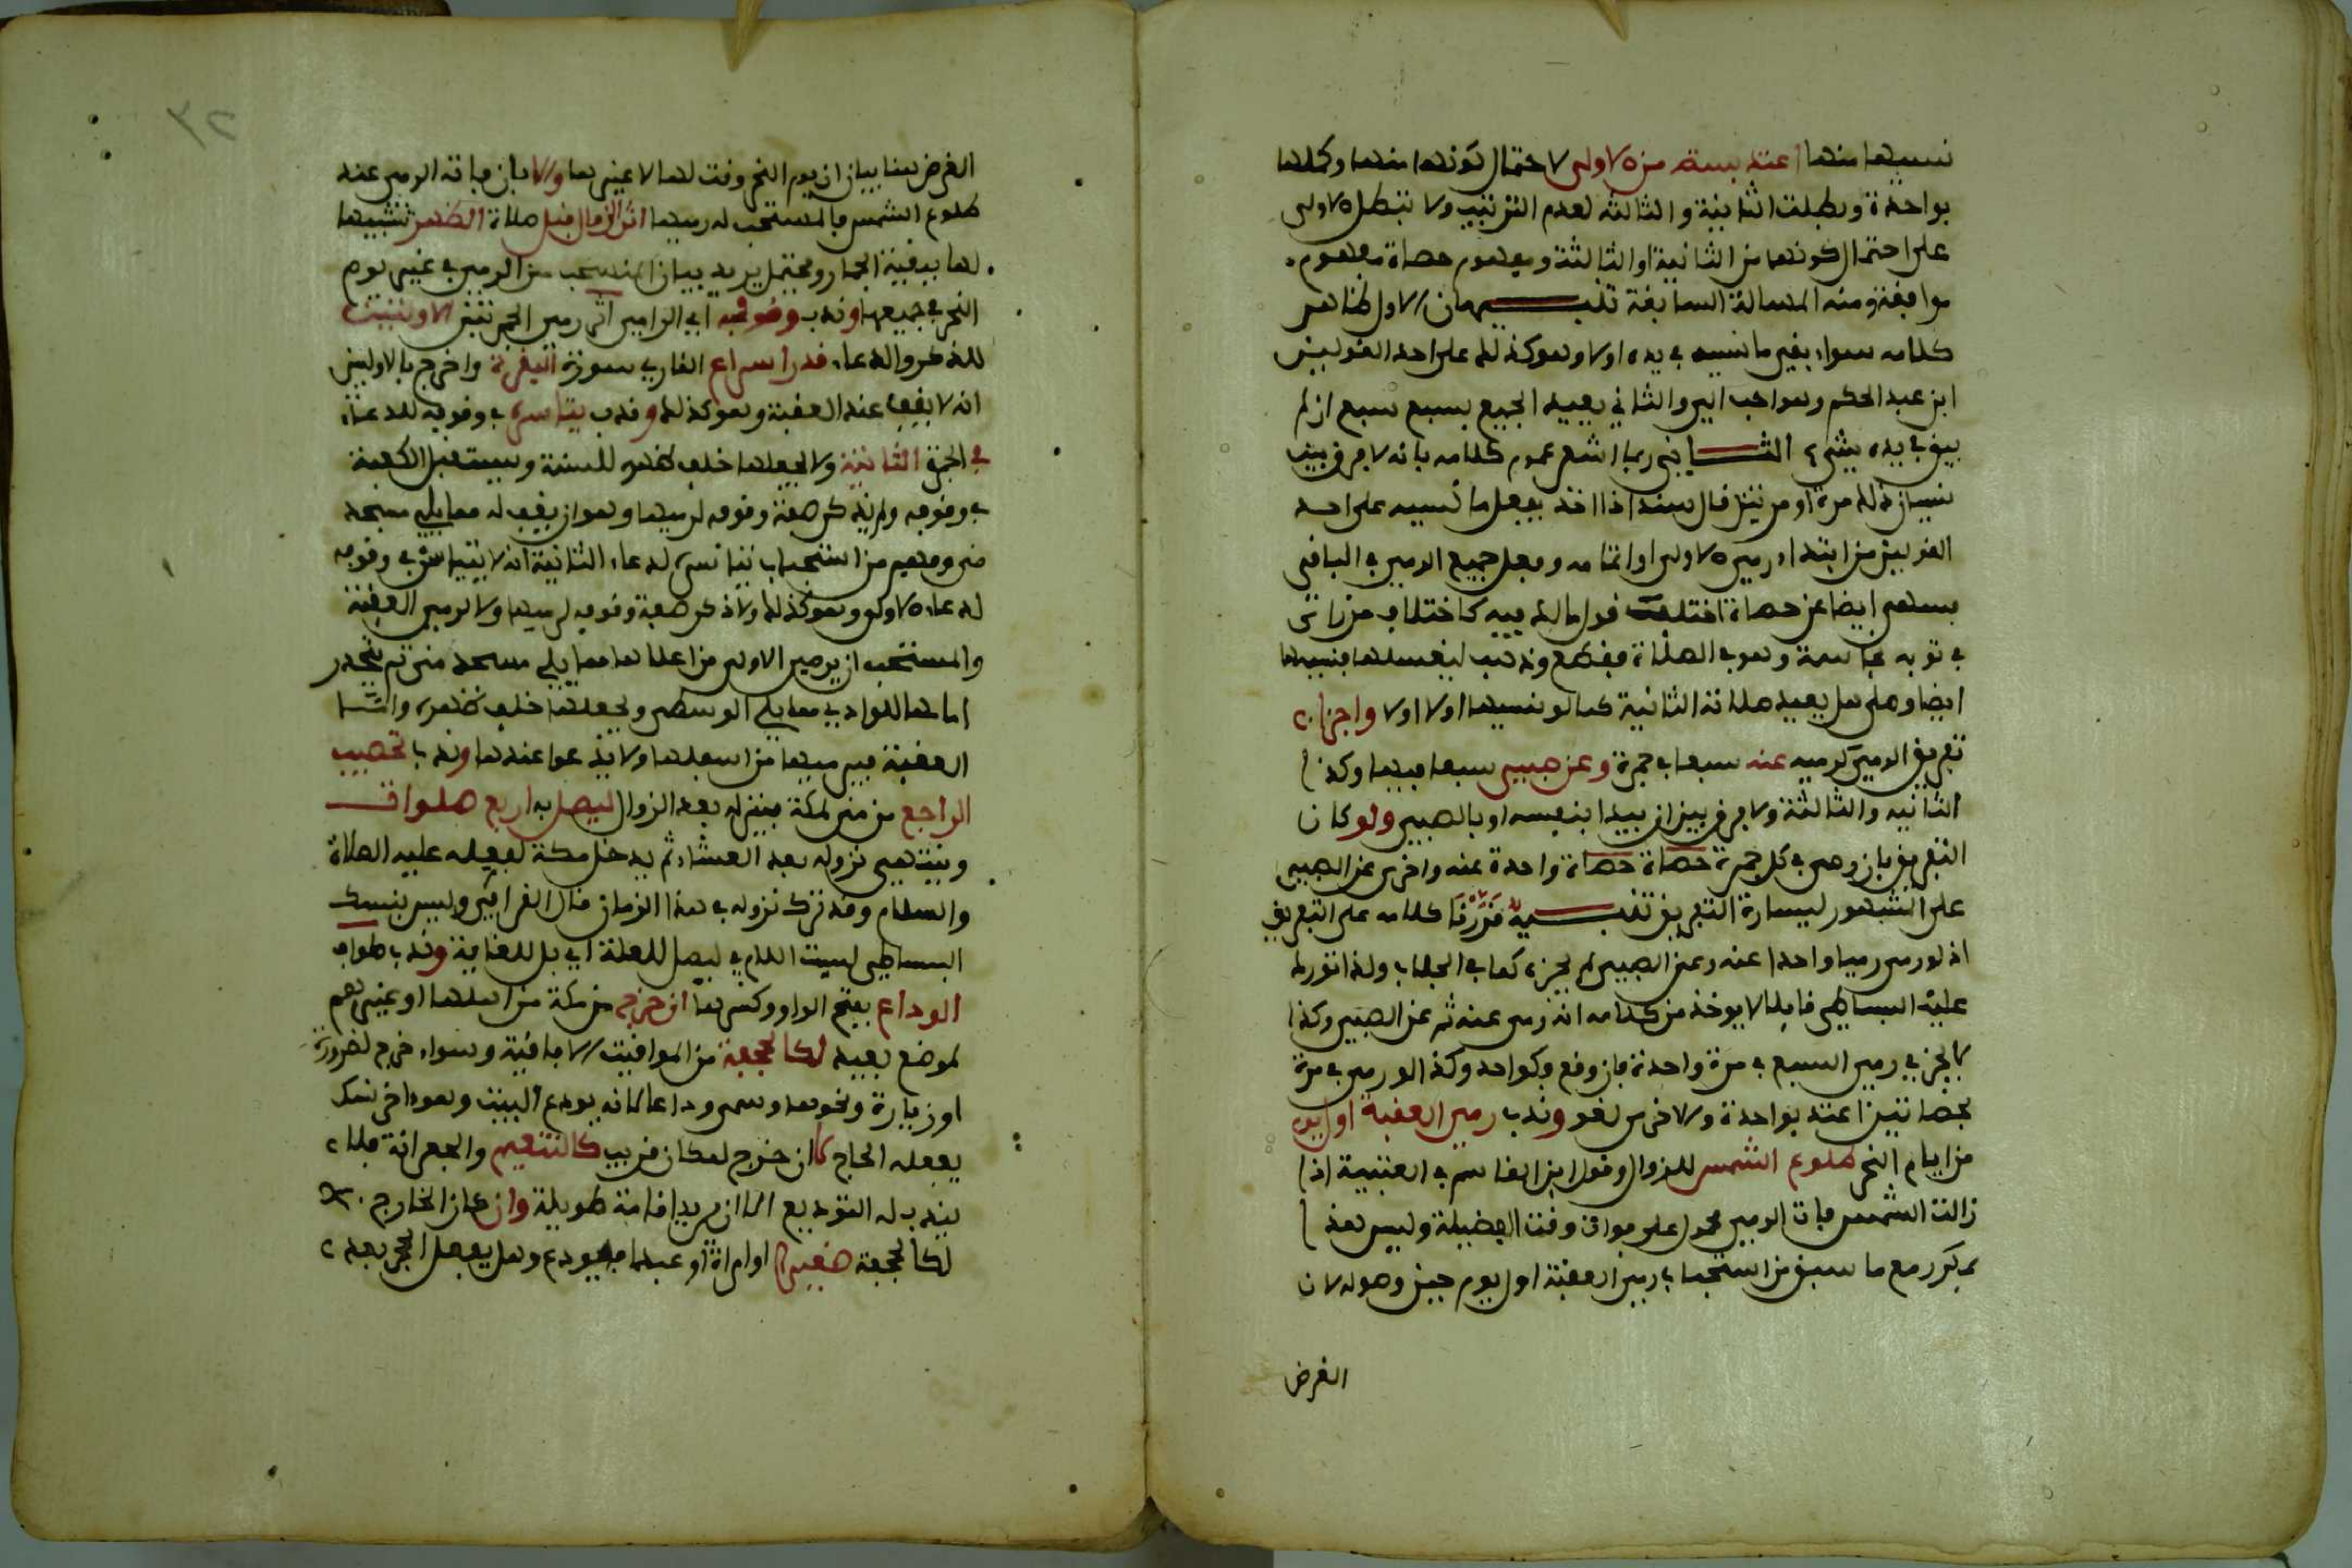 نسيها منها اعتد بستة من الاولى لاحتمال كونها منها وكملها
بواحدة وبطلت الثانية والثالثة لعدم الترتيب ولا تبطل الاولى
على احتمال كونها من الثانية او الثالثة ومفهوم حصاة مفهوم
موافقة ومنه المسالة السابقة تنبيهان الاول ظاهر
كلامه سواء بقي ما نسيه في يده اولا وهو كذلك على احد القولين
ابن عبد الحكم وهو احب الي والثاني يعيد الجميع بسبع سبع ان لم
يبق في يده شيء الثاني ربما اشعر عموم كلامه بانه لا فرق بين
نسيان ذلك مرة او مرتين قال سند اذا اخذ يفعل ما نسيه على احد
القولين من ابتداء رمي الاولى او اتمامه وفعل جميع الرمي في الباقي
فسهى ايضا عن حصاة اختلف قول مالك فيه كاختلاف من راى
في ثوبه نجاسة وهو في الصلاة فقطع وذهب ليغسلها فنسيها
ايضا وصلى هل يعيد صلاته الثانية كما لو نسيها اولا اولا واجزا
تفريق الرمي كرميه عنه سبعا في جمرة وعن صبي سبعا فيها وكذا
الثانية والثالثة ولا فرق بين ان يبدا بنفسه او بالصبي ولو كان
التفريق بان رمى في كل جمرة حصاة حصاة واحدة عنه واخرى عن الصبي
على المشهور ليسارة التفريق تنبيه قررنا كلامه على التفريق
اذ لو رمى رميا واحدا عنه وعن الصبي لم يجزه كما في الجلاب ولذا تورك
عليه البساطي قايلا لا يوخذ من كلامه انه رمى عنه ثم عن الصبي وكذا
لا يجزي رمي السبع في مرة واحدة فان وقع فكواحد وكذا لو رمى في مرة
بحصاتين اعتد بواحدة والاخرى لغو وندب رمي العقبة اول يوم
من ايام النحر طلوع الشمس للزوال وقول ابن القاسم في العتبية اذا
زالت الشمس فات الرمي محمول على فوات وقت الفضيلة وليس هذا
بمكرر مع ما سبق من استحباب رمي العقبة اول يوم حين وصوله لان
الغرض
٣٢
الغرض هنا بيان ان يوم النحر وقت لها لا غيرها والا بان فاته الرمي عند
طلوع الشمس فالمستحب له رميها اثر الزوال قبل صلاة الظهر تشبيها
لها ببقية الجمار ويحتمل يريد بيان المستحب من الرمي في غير يوم
النحر في جميعها وندب وقوفه اي الرامي اثر رمي الجمرتين الاوليين
للذكر والدعاء قدر اسراع القاري سورة البقرة واخرج بالاوليين
انه لا يقف عند العقبة وهو كذلك وندب تياسره في وقوفه للدعاء
في الجمرة الثانية ولا يجعلها خلف ظهره للسنة ويستقبل الكعبة
في وقوفه ولم يذكر صفة وقوفه لرميها وهو ان يقف له مما يلي مسجد
منى ومفهوم من استحباب تياسره لدعاء الثانية انه لا يتياسر في وقوفه
لدعاء الاولى وهو كذلك ولا ذكر صفة وقوفه لرميها ولا لرمي العقبة
والمستحب ان يرمي الاولى من اعلاها مما يلي مسجد منى ثم ينحدر
امامها للوادي مما يلي الوسطى ويجعلها خلف ظهره واما
العقبة فيرميها من اسفلها ولا يدعو عندها وندب تحصيب
الراجع من منى لمكة فينزله بعد الزوال ليصلي به اربع صلوات
وينتهي نزوله بعد العشاء ثم يدخل مكة لفعله عليه الصلاة
والسلام وقد ترك نزوله في هذا الزمان قال القرافي وليس بنسك
البساطي ليست اللام في ليصلي للعلة اي بل للغاية وندب طواف
الوداع بفتح الواو وكسرها ان خرج من مكة من اهلها او غيرهم
لموضع بعيد لكالجحفة من المواقيت الافاقية وسواء خرج لضرورة
او زيارة ونحوها وسمي وداعا لانه يودع البيت وهو اخر نسك
يفعله الحاج لا ان خرج لمكان قريب كالتنعيم والجعرانة فلا
يندب له التوديع الا ان يريد اقامة طويلة وان كان الخارج
لكالجحفة صغيرا او امراة او عبدا فيودع وهل يفعل الحجر بعد